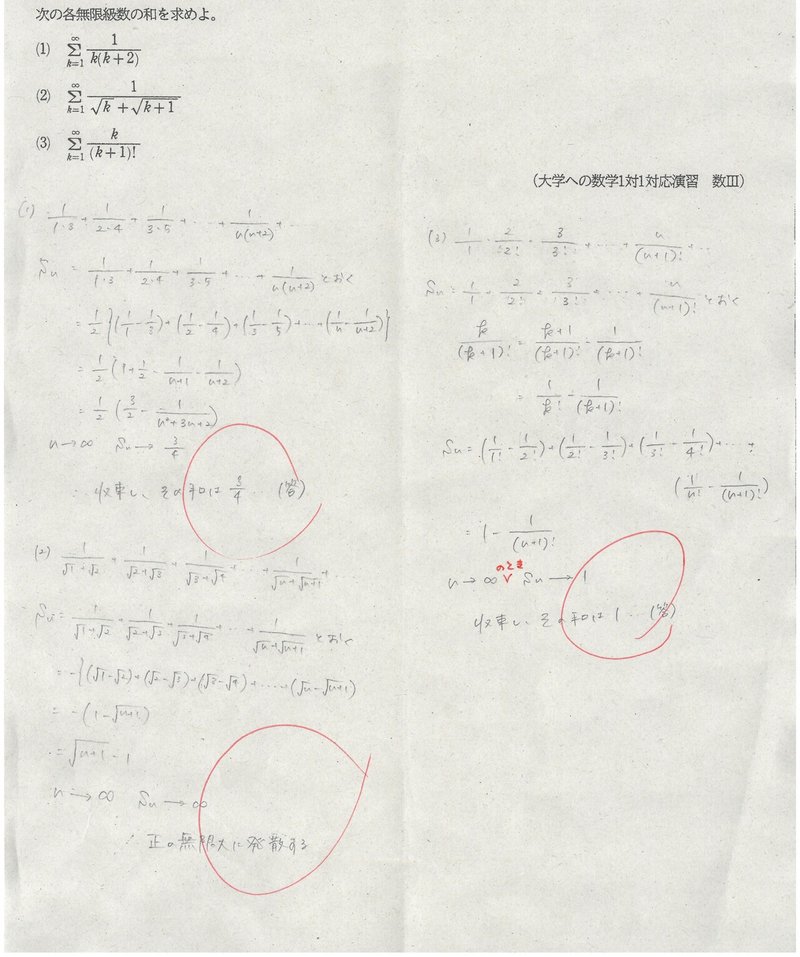 次の各無限級数の和を求めよ。
(1) ∞Σk=1 1/k(k+2)
(2) ∞Σk=1 1/(√k+√k+1)
(3) ∞Σk=1 k/(k+1)!
(1) 1/1·3 + 1/2·4 + 1/3·5 + … + 1/n(n+2) + …
Sn = 1/1·3 + 1/2·4 + 1/3·5 + … + 1/n(n+2) とおく
= 1/2{(1/1 - 1/3) + (1/2 - 1/4) + (1/3 - 1/5) + … + (1/n - 1/n+2)}
= 1/2(1 + 1/2 - 1/n+1 - 1/n+2)
= 1/2(3/2 - 1/n²+3n+2)
n→∞ Sn→ 3/4
∴ 収束し、その和は 3/4 … (答)
(2) 1/√1+√2 + 1/√2+√3 + 1/√3+√4 + … + 1/√n+√n+1 + …
Sn = 1/√1+√2 + 1/√2+√3 + 1/√3+√4 + … + 1/√n+√n+1 とおく
= -{(√1-√2)+(√2-√3)+(√3-√4)+ … +(√n-√n+1)
= -(1-√n+1)
= √n+1 - 1
n→∞ Sn→∞
∴ 正の無限大に発散する
(大学への数学1対1対応演習 数Ⅲ)
(3) 1/1 2/2! 3/3! + … + n/(n+1)! + …
Sn = 1/1 + 2/2! + 3/3! + … + n/(n+1)! とおく
k/(k+1)! = k+1/(k+1)! - 1/(k+1)!
= 1/k! - 1/(k+1)!
Sn = (1/1! - 1/2!) + (1/2! - 1/3!) + (1/3! - 1/4!) + … +
(1/n! - 1/(n+1)!)
= 1 - 1/(n+1)!
n→∞ のとき Sn→1
収束し、その和は 1 … (答)